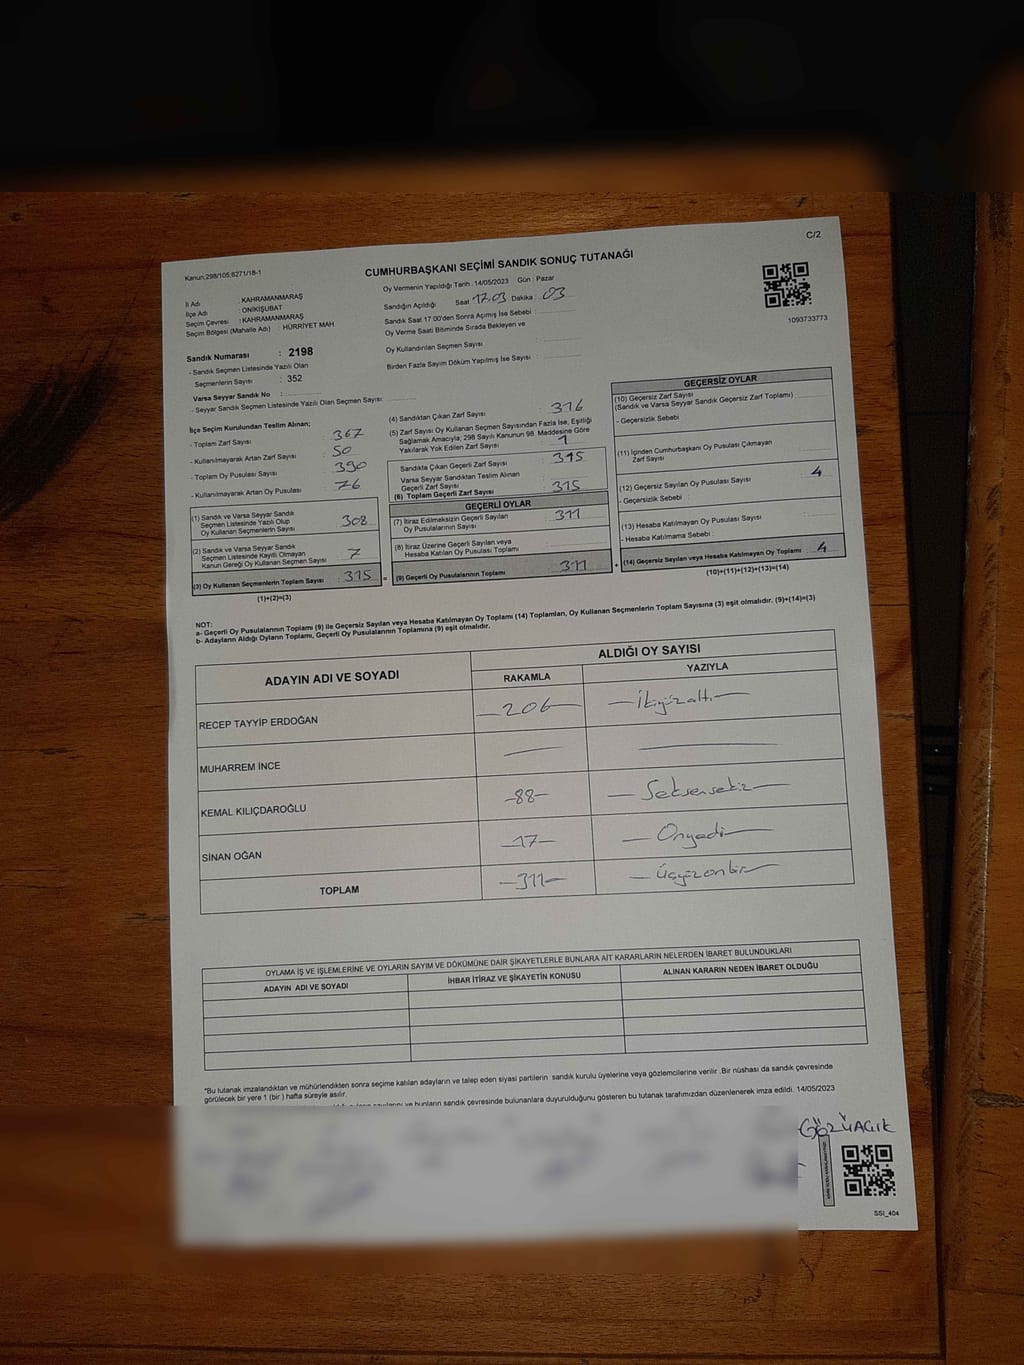 C/2
Kanun:298/105,6271/18-1
CUMHURBAŞKANI SEÇİMİ SANDIK SONUÇ TUTANAĞI
İl Adı : KAHRAMANMARAŞ
İlçe Adı : ONİKİŞUBAT
Seçim Çevresi : KAHRAMANMARAŞ
Seçim Bölgesi (Mahalle Adı) : HÜRRİYET MAH.
Sandık Numarası : 2198
- Sandık Seçmen Listesinde Yazılı Olan
Seçmenlerin Sayısı : 352
Varsa Seyyar Sandık No :
- Seyyar Sandık Seçmen Listesinde Yazılı Olan Seçmen Sayısı:
Oy Vermenin Yapıldığı Tarih : 14/05/2023 Gün : Pazar
Sandığın Açıldığı Saat 17.03 Dakika : 03
Sandık Saat 17:00'den Sonra Açımış İse Sebebi :
Oy Verme Saati Bitiminde Sırada Bekleyen ve
Oy Kullandırılan Seçmen Sayısı :
Birden Fazla Sayım Döküm Yapılmış İse Sayısı :
1093733773
İlçe Seçim Kurulundan Teslim Alınan;
- Toplam Zarf Sayısı : 367
- Kullanılmayarak Artan Zarf Sayısı : 50
- Toplam Oy Pusulası Sayısı : 390
- Kullanılmayarak Artan Oy Pusulası : 76
(1) Sandık ve Varsa Seyyar Sandık
Seçmen Listesinde Yazılı Olup
Oy Kullanan Seçmenlerin Sayısı : 308
(2) Sandık ve Varsa Seyyar Sandık
Seçmen Listesinde Kayıtlı Olmayan
Kanun Gereği Oy Kullanan Seçmen Sayısı : 7
(3) Oy Kullanan Seçmenlerin Toplam Sayısı : 315
(1)+(2)=(3)
(4) Sandıktan Çıkan Zarf Sayısı : 316
(5) Zarf Sayısı Oy Kullanan Seçmen Sayısından Fazla İse, Eşitliği
Sağlamak Amacıyla; 298 Sayılı Kanunun 98. Maddesine Göre
Yakılarak Yok Edilen Zarf Sayısı : 1
Sandıkta Çıkan Geçerli Zarf Sayısı : 315
Varsa Seyyar Sandıktan Teslim Alınan
Geçerli Zarf Sayısı :
(6) Toplam Geçerli Zarf Sayısı : 315
GEÇERLİ OYLAR
(7) İtiraz Edilmeksizin Geçerli Sayılan
Oy Pusulalarının Sayısı : 311
(8) İtiraz Üzerine Geçerli Sayılan veya
Hesaba Katılan Oy Pusulası Toplamı :
(9) Geçerli Oy Pusulalarının Toplamı : 311
GEÇERSİZ OYLAR
(10) Geçersiz Zarf Sayısı
(Sandık ve Varsa Seyyar Sandık Geçersiz Zarf Toplamı) :
- Geçersizlik Sebebi :
(11) İçinden Cumhurbaşkanı Oy Pusulası Çıkmayan
Zarf Sayısı :
(12) Geçersiz Sayılan Oy Pusulası Sayısı : 4
- Geçersizlik Sebebi :
(13) Hesaba Katılmayan Oy Pusulası Sayısı :
- Hesaba Katılmama Sebebi :
(14) Geçersiz Sayılan veya Hesaba Katılmayan Oy Toplamı : 4
(10)+(11)+(12)+(13)=(14)
NOT:
a- Geçerli Oy Pusulalarının Toplamı (9) ile Geçersiz Sayılan veya Hesaba Katılmayan Oy Toplamı (14) Toplamları, Oy Kullanan Seçmenlerin Toplam Sayısına (3) eşit olmalıdır. (9)+(14)=(3)
b- Adayların Aldığı Oyların Toplamı, Geçerli Oy Pusulalarının Toplamına (9) eşit olmalıdır.
ADAYIN ADI VE SOYADI ALDIĞI OY SAYISI
RAKAMLA YAZIYLA
RECEP TAYYİP ERDOĞAN —206— —İkiyüzaltı—
MUHARREM İNCE — —
KEMAL KILIÇDAROĞLU —88— —Seksensekiz—
SİNAN OĞAN —17— —Onyedi—
TOPLAM —311— —Üçyüzonbir—
OYLAMA İŞ VE İŞLEMLERİNE VE OYLARIN SAYIM VE DÖKÜMÜNE DAİR ŞİKAYETLERLE BUNLARA AİT KARARLARIN NELERDEN İBARET BULUNDUKLARI
ADAYIN ADI VE SOYADI İHBAR İTİRAZ VE ŞİKAYETİN KONUSU ALINAN KARARIN NEDEN İBARET OLDUĞU
*Bu tutanak imzalandıktan ve mühürlendikten sonra seçime katılan adayların ve talep eden siyasi partilerin sandık kurulu üyelerine veya gözlemcilerine verilir .Bir nüshası da sandık çevresinde
görülecek bir yere 1 (bir ) hafta süreyle asılır.
ve bunların sandık çevresinde bulunanlara duyurulduğunu gösteren bu tutanak tarafımızdan düzenlenerek imza edildi. 14/05/2023
GÖZÜAÇIK
SSI_404